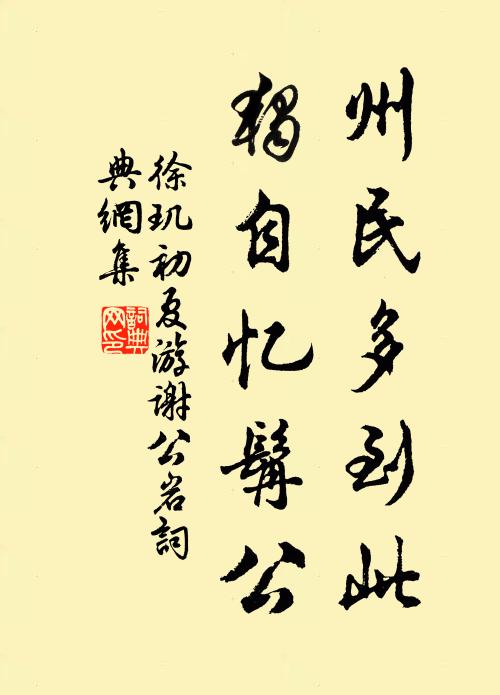 州民多到此
独自忆髯公
徐玑初夏游谢公岩詞
典網集
詞典
网印